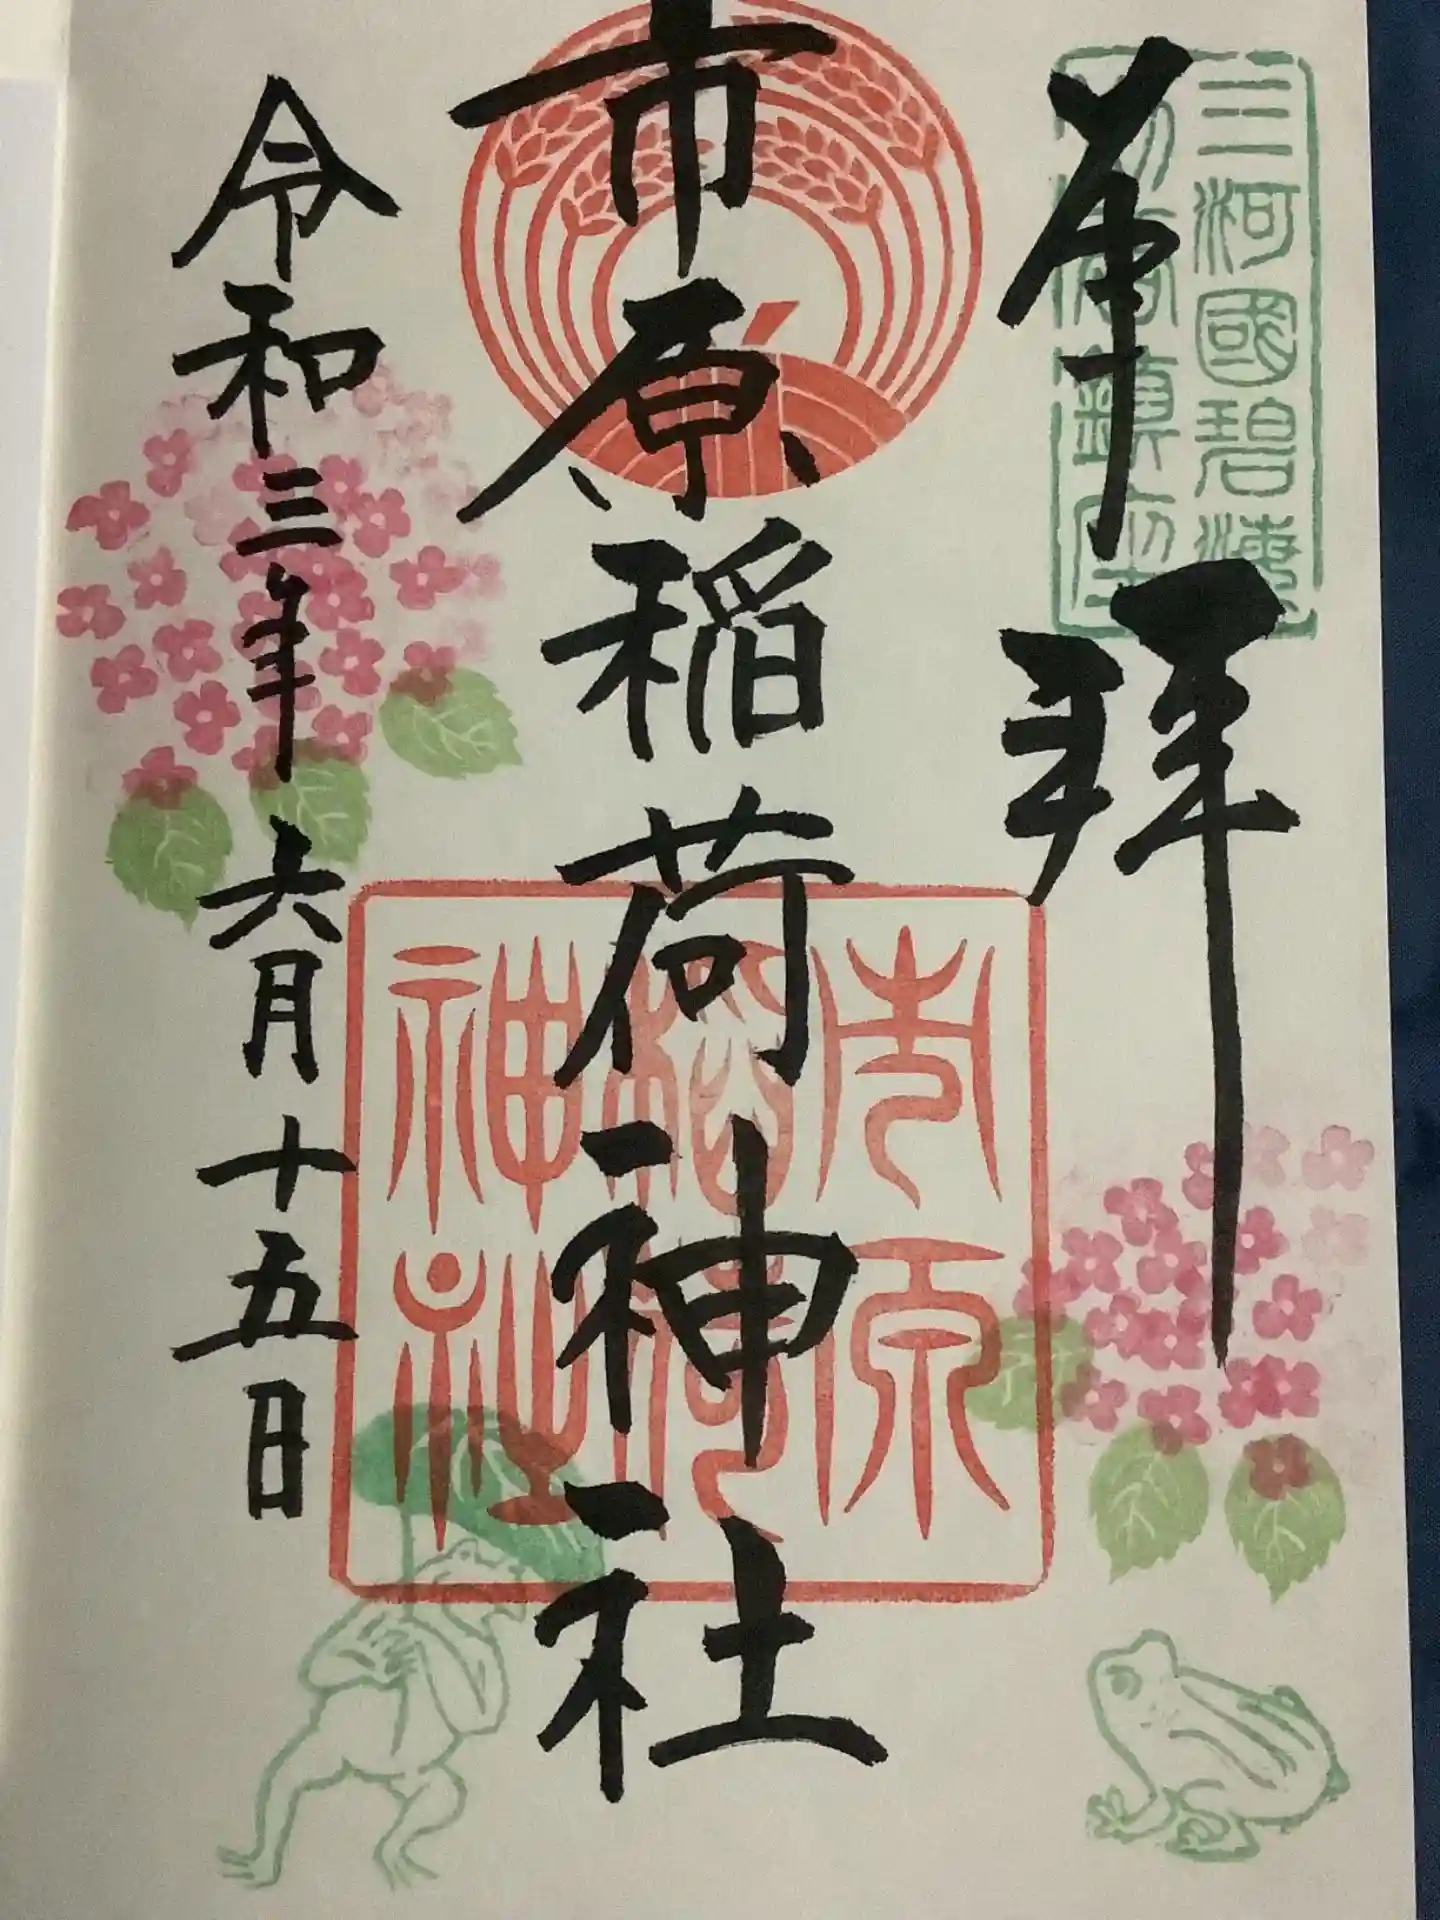 奉拝
三河國碧海
市原稲荷神社
市原
稲荷
神社
令和三年六月十五日